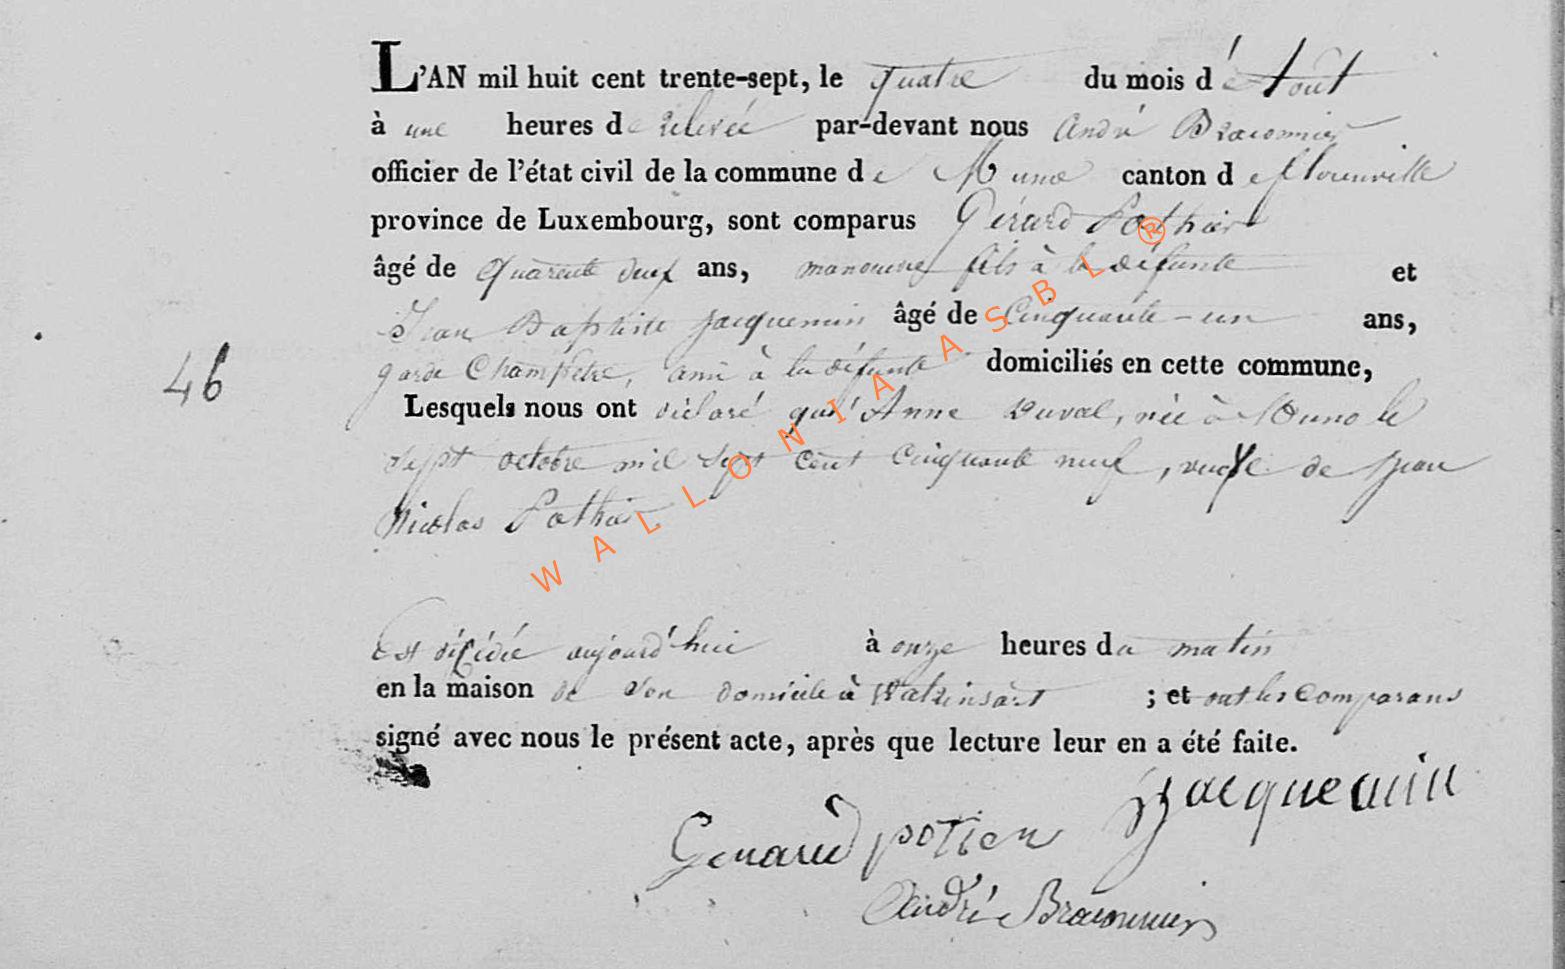 L'AN mil huit cent trente-sept, le quatre du mois d'Août
à une heures de relevée par-devant nous André Braconnier
officier de l'état civil de la commune de Muno canton de florenville
province de Luxembourg, sont comparus Gérard Pothier
âgé de Quarante deux ans, manouvre fils à la défunte et
Jean Baptiste Jacquemin âgé de Cinquante-un ans,
46
garde Champêtre, ami à la défunte domiciliés en cette commune,
Lesquels nous ont déclaré que Anne Duval, née à Muno le
sept octobre mil sept cent cinquante neuf, veuve de Jean
Nicolas Pothier
Est décédée aujourd'hui à onze heures du matin
en la maison de son domicile à Watrinsart ; et ont les comparans
signé avec nous le présent acte, après que lecture leur en a été faite.
Jacquemin
Gerard potier
André Braconnier
WALLONIA ASBL ®